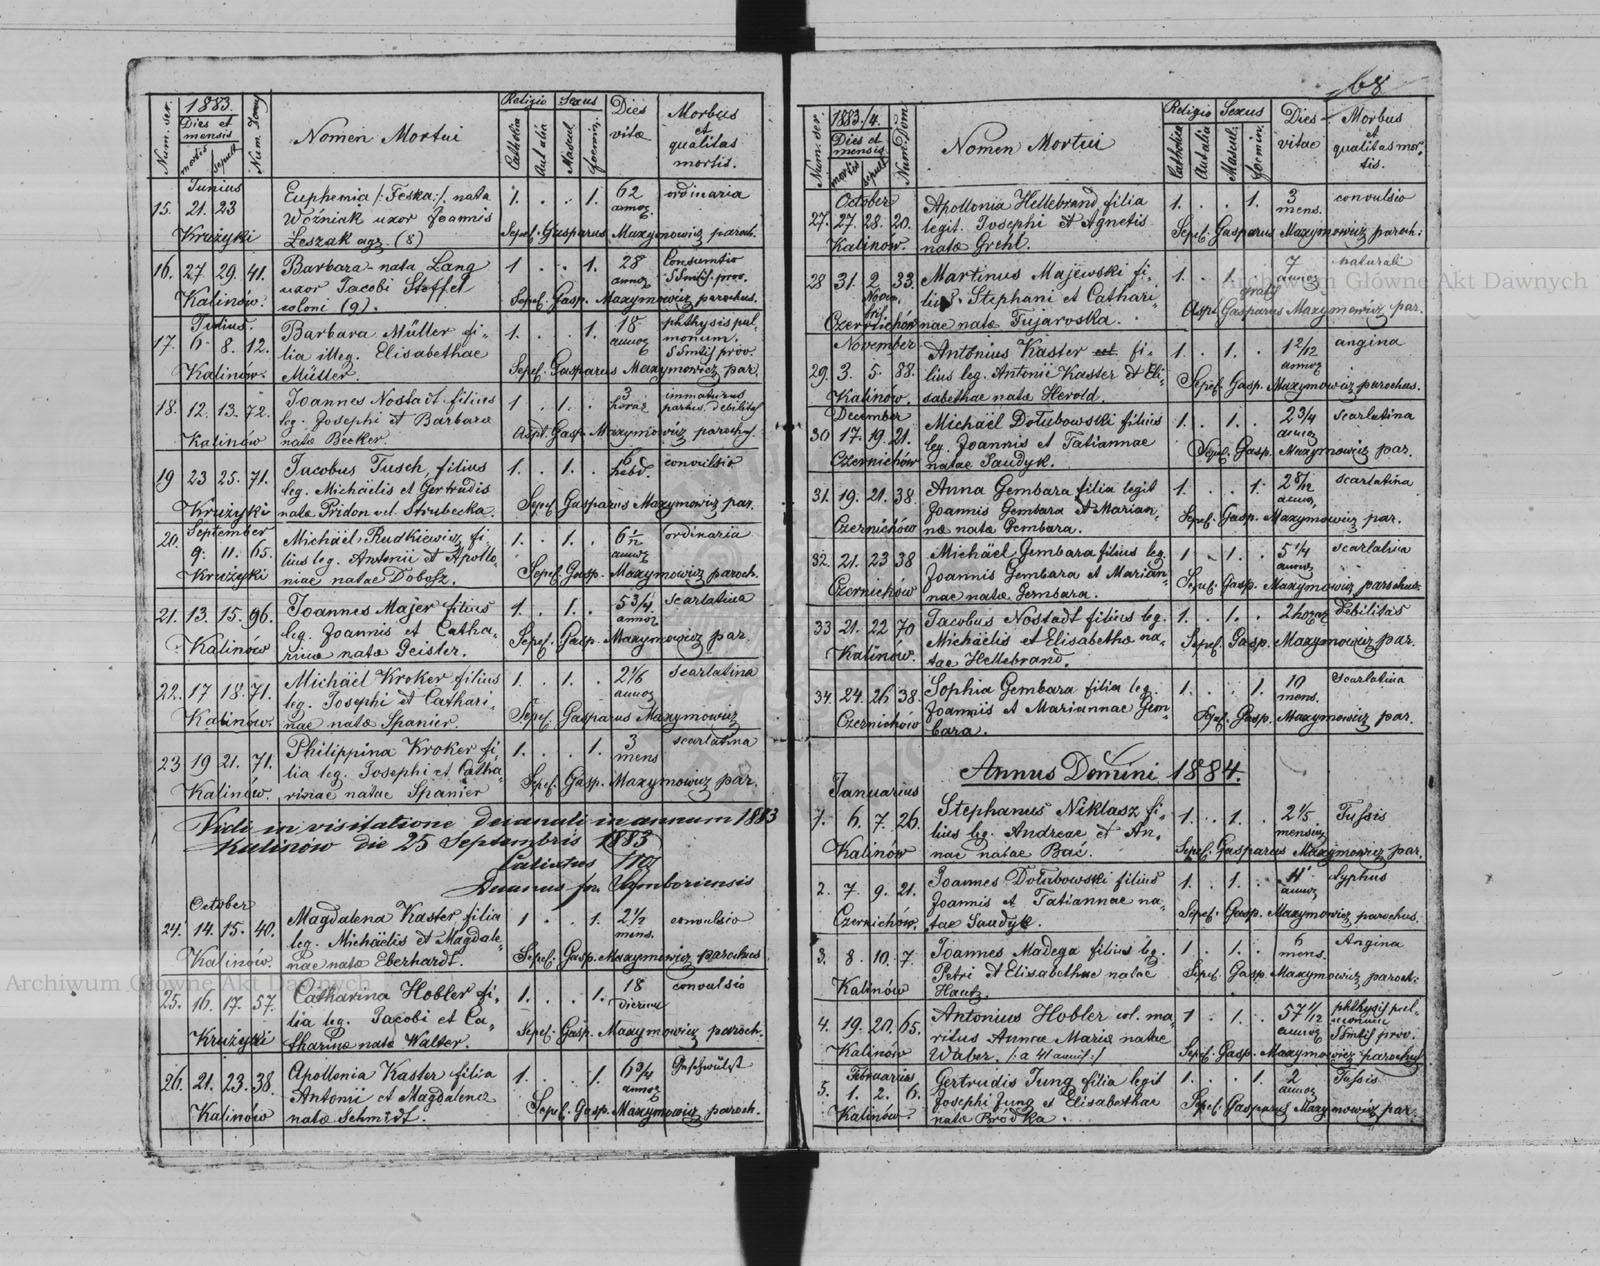 1883.
Num. ser.
Dies et
mensis
mortis
sepult
Num. Domus
Nomen Mortui
Religio
Catholica
Aut alia
Sexus
Mascul.
foemin.
Dies
vitæ
Morbus
et
qualitas
mortis.
Junius
15. 21. 23
Krużyki
Euphemia /:Feska:/ nata
Woźniak uxor Joannis
Leszak agr. (8)
1. . . 1. 62
annor.
ordinaria
Sepel. Gasparus Maxymowicz paroch.
16. 27. 29. 41.
Kalinów.
Barbara nata Lang
uxor Jacobi Stoffel
coloni (9).
1 . . 1. 28
annor
Consumtio
SSmis. prov.
Sepel. Gasp. Maxymowicz parochus.
Julius.
17. 6. 8. 12.
Kalinów.
Barbara Müller fi-
lia illeg. Elisabethae
Müller.
1. . . 1. 18.
annor
phthysis pul-
monum.
SSmis. prov.
Sepel. Gasparus Maxymowicz par.
18. 12. 13. 72.
Kalinów
Joannes Nostadt filius
leg. Josephi et Barbaræ
natæ Becker.
1 . 1. . 3
horæ
immaturus
partus. Debilitas
Gasp. Maxymowicz parochus.
19 23 25. 71.
Krużyki
Jacobus Tusch, filius
leg. Michäelis et Gertrudis
natæ Pridon vel Strubecka.
1. . 1. . 6
hebd.
convulsio
Sepel. Gasparus Maxymowicz par.
September
20. 9. 11. 65.
Krużyki
Michäel Rudkiewicz fi-
lius leg. Antonii et Apollo-
niae natae Dobosz.
1. . 1. . 6½
annor
ordinaria
Sepel. Gasp. Maxymowicz paroch.
21. 13. 15. 96.
Kalinów
Joannes Majer filius
leg. Joannis et Catha-
rinæ natæ Geister.
1. . 1. . 5¾.
annor
scarlatina
Sepel. Gasp. Maxymowicz par.
22. 17 18. 71.
Kalinów.
Michäel Kroker filius
leg. Josephi et Cathari-
nae natæ Spanier.
1. . 1. . 2⅙
annor
scarlatina
Sepel. Gasparus Maxymowicz
23 19 21. 71.
Kalinów.
Philippina Kroker fi-
lia leg. Josephi et Catha-
rinae natae Spanier
1. . . 1. 3
mens
scarlatina
Sepel. Gasp. Maxymowicz par.
Vidi in visitatione decanali in annum 1883
Kalinów die 25 Septembris 1883
Calixtus
Decanus for. Samboriensis
October
24. 14. 15. 40.
Kalinów.
Magdalena Kaster filia
leg. Michäelis et Magdale-
nae natæ Eberhardt.
1 . . 1. 2½
mens.
convulsio
Sepel. Gasp. Maxymowicz parochus
25. 16. 17. 57.
Krużyki
Catharina Hobler fi-
lia leg. Jacobi et Ca-
tharinæ natæ Walter.
1. . . 1. 18
dierum
convulsio
Sepel. Gasp. Maxymowicz paroch.
26. 21. 23. 38.
Kalinów
Apollonia Kaster filia
Antonii et Magdalenæ
natæ Schmidt.
1. . . 1. 6¾
annor
Geschwülst
Sepel. Gasp. Maxymowicz paroch.
68
1883/4.
Num. ser.
Dies et
mensis
mortis
sepult
Num. Dom.
Nomen Mortui
Religio
Catholica
Aut alia
Sexus
Mascul.
foemin.
Dies
vitae
Morbus
et
qualitas mor-
tis.
October
27. 27. 28. 20.
Kalinow.
Apollonia Hellebrand filia
legit. Josephi et Agnetis
natæ Grehl.
1. . . 1. 3
mens.
convulsio
Sepel. Gasparus Maxymowicz paroch:
28 31. 2 33.
Novem-
bris.
Czernichów
Martinus Majewski fi-
lius Stephani et Cathari-
nae natæ Fujarska.
1. . 1. . 7
annor
naturali
gratis
Gasparus Maxymowicz par.
November
29. 3. 5. 88.
Kalinów.
Antonius Kaster fi-
lius leg. Antonii Kaster et Eli-
sabethae natæ Herold.
1. . 1. . 1 2/12
annor
angina
Sepel. Gasp. Maxymowicz parochus.
December
30 17. 19. 21.
Czernichów
Michäel Dołubowski filius
leg. Joannis et Tatiannae
natae Saudyk.
1. . 1. . 2¾
annor
Scarlatina
Sepel. Gasp. Maxymowicz par.
31. 19. 21. 38
Czernichów
Anna Gembara filia legit
Joannis Gembara et Marian-
næ natæ Gembara.
1. . . 1. 2 8/12
annor,
scarlatina
Sepel. Gasp. Maxymowicz par.
32. 21. 23 38
Czernichów
Michäel Gembara filius leg.
Joannis Gembara et Marian-
nae natæ Gembara.
1 . 1. . 5¼
annor
scarlatina
Sepel. Gasp. Maxymowicz parochus.
33 21. 22 70
Kalinów.
Jacobus Nostadt filius leg.
Michäelis et Elisabethæ na-
tae Hellebrand.
1. . 1. . 2 horar
debilitas
Sepel. Gasp. Maxymowicz par.
34. 24. 26 38.
Czernichów
Sophia Gembara filia leg.
Joannis et Mariannae Gem-
bara.
1. . . 1. 10
mens.
Scarlatina
Sepel. Gasp. Maxymowicz par.
Annus Domini 1884.
Januarius
1. 6. 7. 26.
Kalinów
Stephanus Niklasz fi-
lius leg. Andreae et An-
nae natae Bać.
1. . 1. . 2⅕.
mensium
Tussis
Sepel. Gasparus Maxymowicz par.
2. 7. 9. 21.
Czernichów.
Joannes Dołubowski filius
Joannis et Tatiannae na-
tae Saudyk.
1. . 1. . 11
annor
typhus
Sepel. Gasp. Maxymowicz parochus.
3. 8. 10. 7
Kalinów
Joannes Madega filius leg.
Petri et Elisabethae natae
Hautz.
1. . 1. . 6
mens.
Angina
Sepel. Gasp. Maxymowicz paroch:
4. 19. 20. 65.
Kalinów
Antonius Hobler col. ma-
ritus Annæ Mariæ natae
Waber.
1 . 1. . 57 1/12
annor
phthysis pul-
monum
SSmis. prov.
Sepel. Gasp. Maxymowicz parochus
Februarius
5. 1. 2. 6.
Kalinów.
Gertrudis Jung filia legit
Josephi Jung et Elisabethae
natæ Bródka.
1. . . 1. 2
annor
Tussis
Sepel. Gasparus Maxymowicz par.
Archiwum Główne Akt Dawnych
Archiwum Główne Akt Dawnych